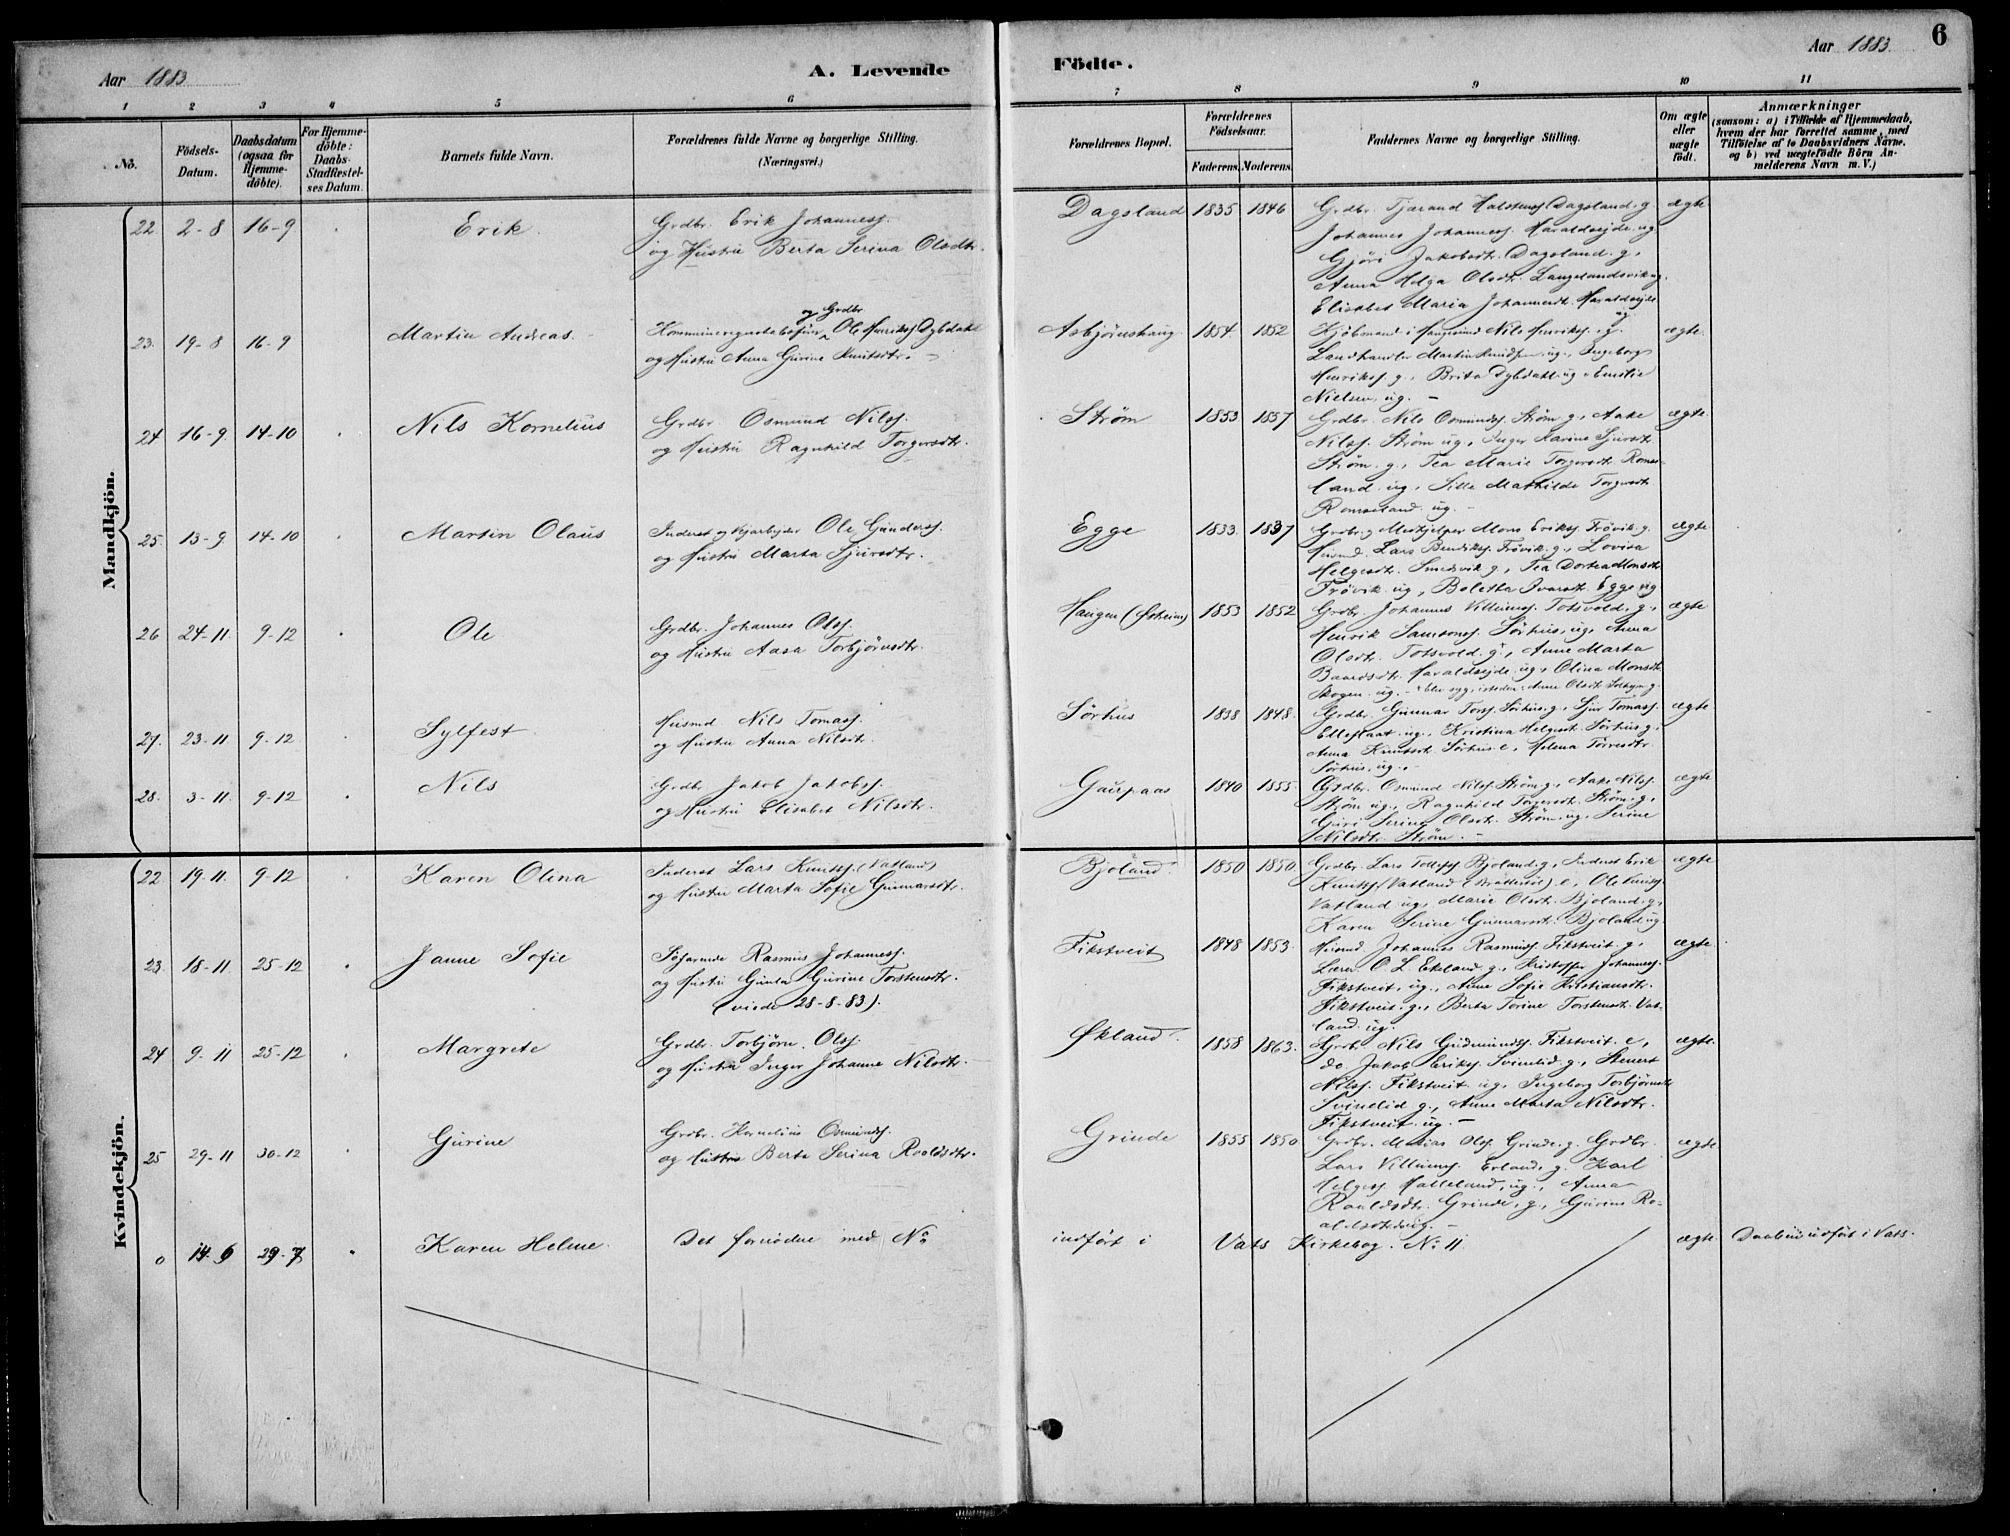 Aar 1883.
A. Levende
Födte.
Aar 1883.
6
1 2 3 4 5 6 7 8 9 10 11
No.
Födsels-
Datum.
Daabsdatum
(ogsaa for
Hjemme-
döbte).
For Hjemme-
döbte:
Daabs-
Stadfæstel-
ses Datum.
Barnets fulde Navn.
Forældrenes fulde Navne og borgerlige Stilling.
(Næringsvei.)
Forældrenes Bopæl.
Forældrenes
Födselsaar.
Faderens. Moderens.
Faddernes Navne og borgerlige Stilling.
Om ægte
eller
uægte
födt.
Anmærkninger
(saasom: a) i Tilfælde af Hjemmedaab,
hvem der har forrettet samme, med
Tilföielse af to Daabsvidners Navne.
og b) ved uægtefödte Börn An-
melderens Navn m. V.)
Mandkjön.
22. 2-8 16-9 Erik.
Grdbr. Erik Johanness.
og Hustru Berta Serina Olsdtr.
Dagsland 1835 1846
Grdbr. Tjærand Halstenss. Dagsland. g.
Johannes Johanness. Haraldseide. ug
Gjöri Jakobsdt. Dagsland. g.
Anna Helga Olsdt. Langelandsvik ug.
Elisabet Maria Johannesdt. Haraldseide
ug
ægte
23. 19-8 16-9 Martin Andreas.
og Grdbr
Ole Henriks. Dybdahl
og Hustru Anna Gurine Knutsdtr.
Asbjørnshaug. 1854. 1852
Kjøbmand i Haugesund Nils Henriks. g.
Landhandler Martin Knudsen ug., Ingeborg
Henriks. g., Brita Dybdahl ug. Emilie
Nielsen, ug.
ægte.
24 16-9 14-10 Nils Kornelius
Grdbr Osmund Nilss.
og Hustru Ragnhild Torgersdtr.
Strøm 1853 1857
Grdbr. Nils Osmundss. Strøm g., Aake
Nilss. Strøm ug., Inger Karine Sjursdt.
Strøm. g., Tea Marie Torgersdt. Romse-
land. ug, Sille Mathilde Torgersdt.
Romseland. ug.
ægte
25. 13-9 14-10 Martin Olaus
Inderst og Vejarbejder Ole Gunders.
og Hustru Marta Sjursdtr.
Egge 1833. 1837
Grdbr. og Medhjelper Mons Erikss. Frøvik. g.
Husmd. Lars Bendikss. Frøvik. g., Lovisa
Helgesdt. Smedsvik g, Tea Dortea Monsdt
Frøvik. ug, Boletha Ivarsdt. Egge ug
ægte
26 24-11. 9-12 Ole
Grdbr. Johannes Olss.
og Hustru Aasa Torbjørnsdtr.
Haugen (Østheim) 1853 1852
Grdbr. Johannes Villumss. Totsvold. g.,
Henrik Samsonss. Sørhus, ug. Anna
Olsdt. Totsvold. g., Anne Marta
Baardsdt. Haraldseide. ug., Olina Monsdt.
Skogen. ug. - blev syg, isteden: Anne Olsdt. g.
ægte
27. 23-11 9-12 Sylfest
Husmd Nils Tomass.
og Hustru Anna Nilsdt.
Sörhus 1838 1848.
Grdbr. Gunnar Torss. Sørhus. g., Sjur Tomass.
ug., Kristina Helgesdt. Sørhus g.,
Anna Knutsdt. Sørhus. e, Helena Torresdtr.
Sørhus, ug.
ægte
28. 3-11. 9-12 Nils
Grdbr Jakob Jakobss.
og Hustru Elisabet Nilsdtr.
Gaupaas 1840 1855
Grdbr. Osmund Nilss. Strøm g., Aake Nilss.
Strøm ug., Ragnhild Torgersdt. Strøm. g.,
Guri Serina Olsdt. Strøm. ug, Serine
Nilsdtr. Strøm.
ægte
Kvindekjön.
22. 19-11. 9-12 Karen Olina
Inderst Lars Knutss. (Vatland)
og Hustru Marta Sofie Gunnarsdt.
Bjoland. 1850 1850.
Grdbr. Lars Tollefss. Bjoland. g., Inderst Erik
Knutss. (Vatland (Brattetøl). e, Ole Knutss.
Vatland ug, Marie Olsdt. Bjoland. g.,
Karen Serine Gunnarsdt. Bjoland ug.
ægte
23. 18-11 25-12 Janne Sofie
Søfarende Rasmus Johanness.
og Hustru Gunla Gurine Torstensdtr.
(viede 28-8-83).
Fikstveit 1848 1853.
Husmd. Johannes Rasmuss. Fikstveit. g.,
Lærer O. L. Ekeland. g., Kristoffer Johanness.
Fikstveit, ug., Anne Sofie Kristiansdt.
Fikstveit. g., Berta Torine Torstensdt. Vat-
land. ug.
ægte
24 9-11 25-12 Margrete
Grdbr. Torbjörn Olss.
og Hustru Inger Johanne Nilsdtr.
Økland. 1858 1863.
Grdbr. Nils Gudmundss. Fikstveit. e,
do Jakob Erikss. Svinelid g., Stenert
Nilss. Fikstveit ug, Ingeborg Torbjørnsdt
Svinelid g., Anne Marta Nilsdtr.
Fikstveit. ug. -
ægte.
25 29-11 30-12 Gurine
Grdbr. Kornelius Osmunds.
og Hustru Berta Serina Roaldsdtr.
Grinde 1855 1850
Grdbr. Matias Olss. Grinde. g. Grdbr.
Lars Villumss. Erland, g. Karl
Helgess. Hatteland, ug., Anna
Roaldsdt. Grinde, g., Gurine Ro-
aldsdt. ug. -
ægte
0 14-6 29-7 Karen Helene.
Det fornødne med No indført i Vats Kirkebog. No 11.
ægte Daaben udført i Vats.